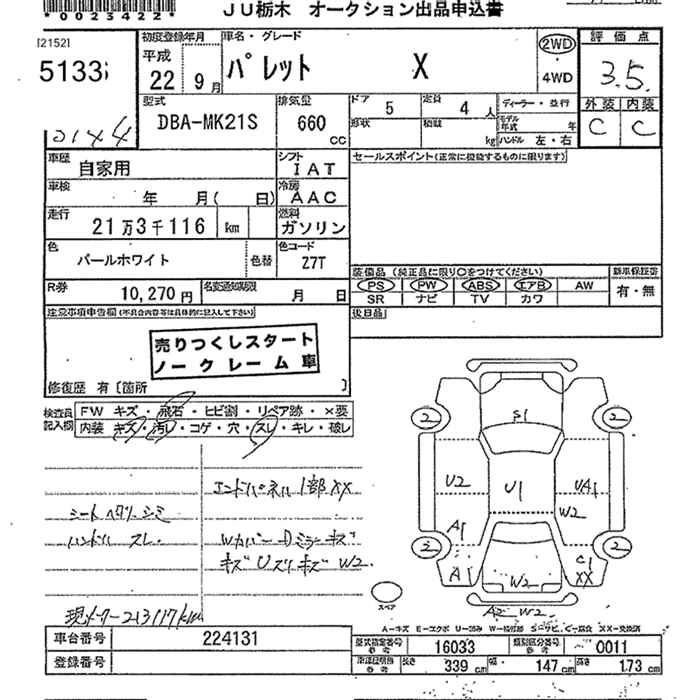 *0023422*
JU栃木 オークション出品申込書
[2152]
5133
初度登録年月
平成
22 9月
車名・グレード
パレット X
2WD
・
4WD
評価点
3.5
外装 内装
C C
型式
DBA-MK21S
排気量
660 CC
ドア 5
定員 4 人
ディーラー・並行
形状
積載 kg
モデル年式 年
ハンドル 左・右
車歴
自家用
シフト
IAT
セールスポイント(正常に機能するものに限ります)
車検
年 月( 日)
冷房
AAC
走行
21万3千116 km
燃料
ガソリン
色
パールホワイト
色替
色コード
Z7T
装備品 (純正品に限り○をつけてください)
新車保証書
PS PW ABS エアB AW
SR ナビ TV カワ
有・無
R券
10,270円
名変通知期限
月 日
注意事項申告欄(不具合内容等は具体的に記入して下さい)
後日品
売りつくしスタート
ノークレーム車
修復歴 有[箇所 ]
検査員記入欄
FW キズ・飛石・ヒビ割・リペア跡・×要
内装 キズ・汚レ・コゲ・穴・スレ・キレ・破レ
エンドパネル1部XX
シートヘタリ シミ
ハンドル スレ
Wカバー Dミラーキズ
キズ Uズリキズ W2.
現メーター213117km
2 2
S1
U2 U1 UA1
W2
A1
2 2
A W2 C1
XX
スペア
A2 W2
A-キズ E-エクボ U-凹み W-補修跡 S-サビ C-腐食 XX-交換済
車台番号 224131
登録番号
型式指定番号 参考 16033
類別区分番号 参考 0011
長さ 339 cm 幅 147 cm 高さ 173 cm